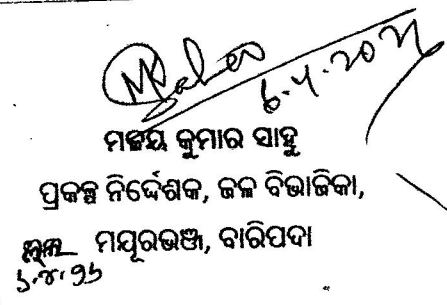 6.4.2021
ମଳୟ କୁମାର ସାହୁ
ପ୍ରକଳ୍ପ ନିର୍ଦ୍ଦେଶକ, ଜଳ ବିଭାଜିକା,
ମଯୂରଭଞ୍ଜ, ବାରିପଦା